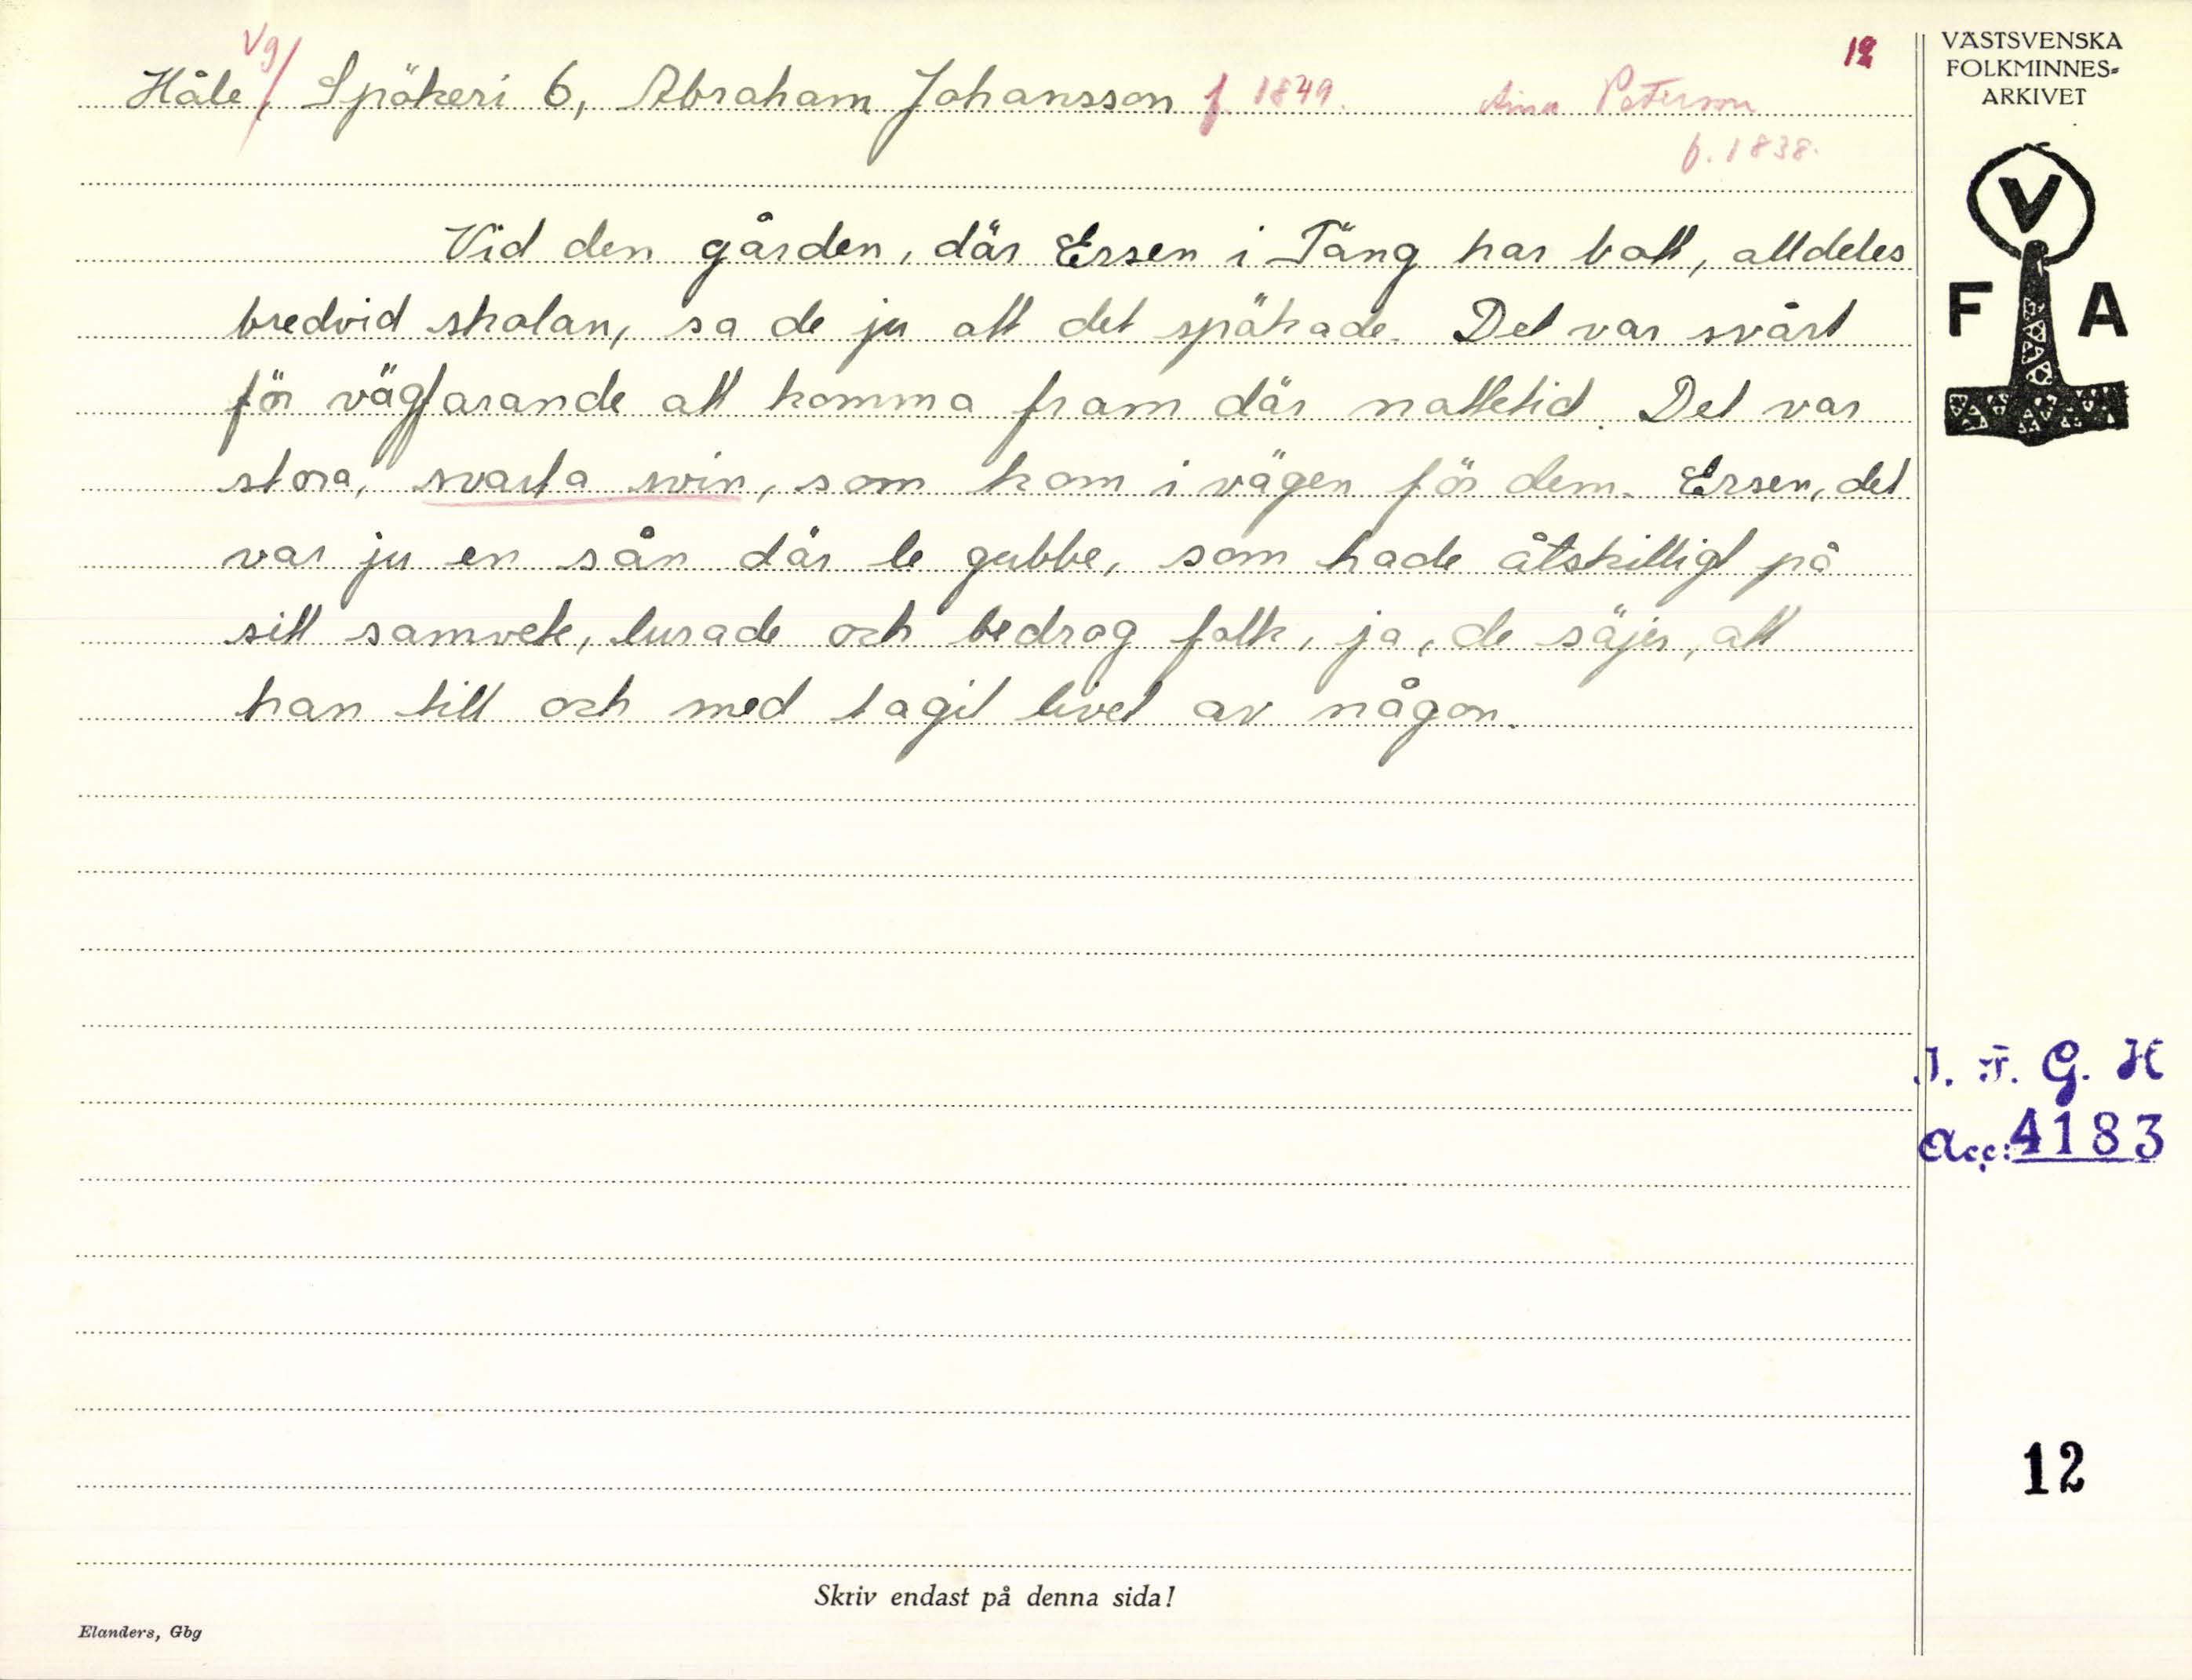 Vg/
12
Håle, Spökeri 6, Abraham Johansson f. 1849. Peterson
f. 1838.
Vid den gården, där Ersen i Täng har bott, alldeles
bredvid skolan, sa de ju att det spökade. Det var svårt
för vägfarande att komma fram där nattetid. Det var
stora, svarta svin, som kom i vägen för dem. Ersen, det
var ju en sån där le gubbe, som hade åtskilligt på
sitt samvete, lurade och bedrog folk, ja, de säjer, att
han till och med tagit livet av någon.
VÄSTSVENSKA
FOLKMINNES-
ARKIVET
V
F A
I. F. G. H
Acc: 4183
12
Skriv endast på denna sida!
Elanders, Gbg